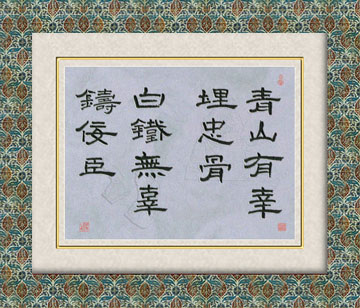 青山有幸
埋忠骨
白鐵無辜
鑄佞臣